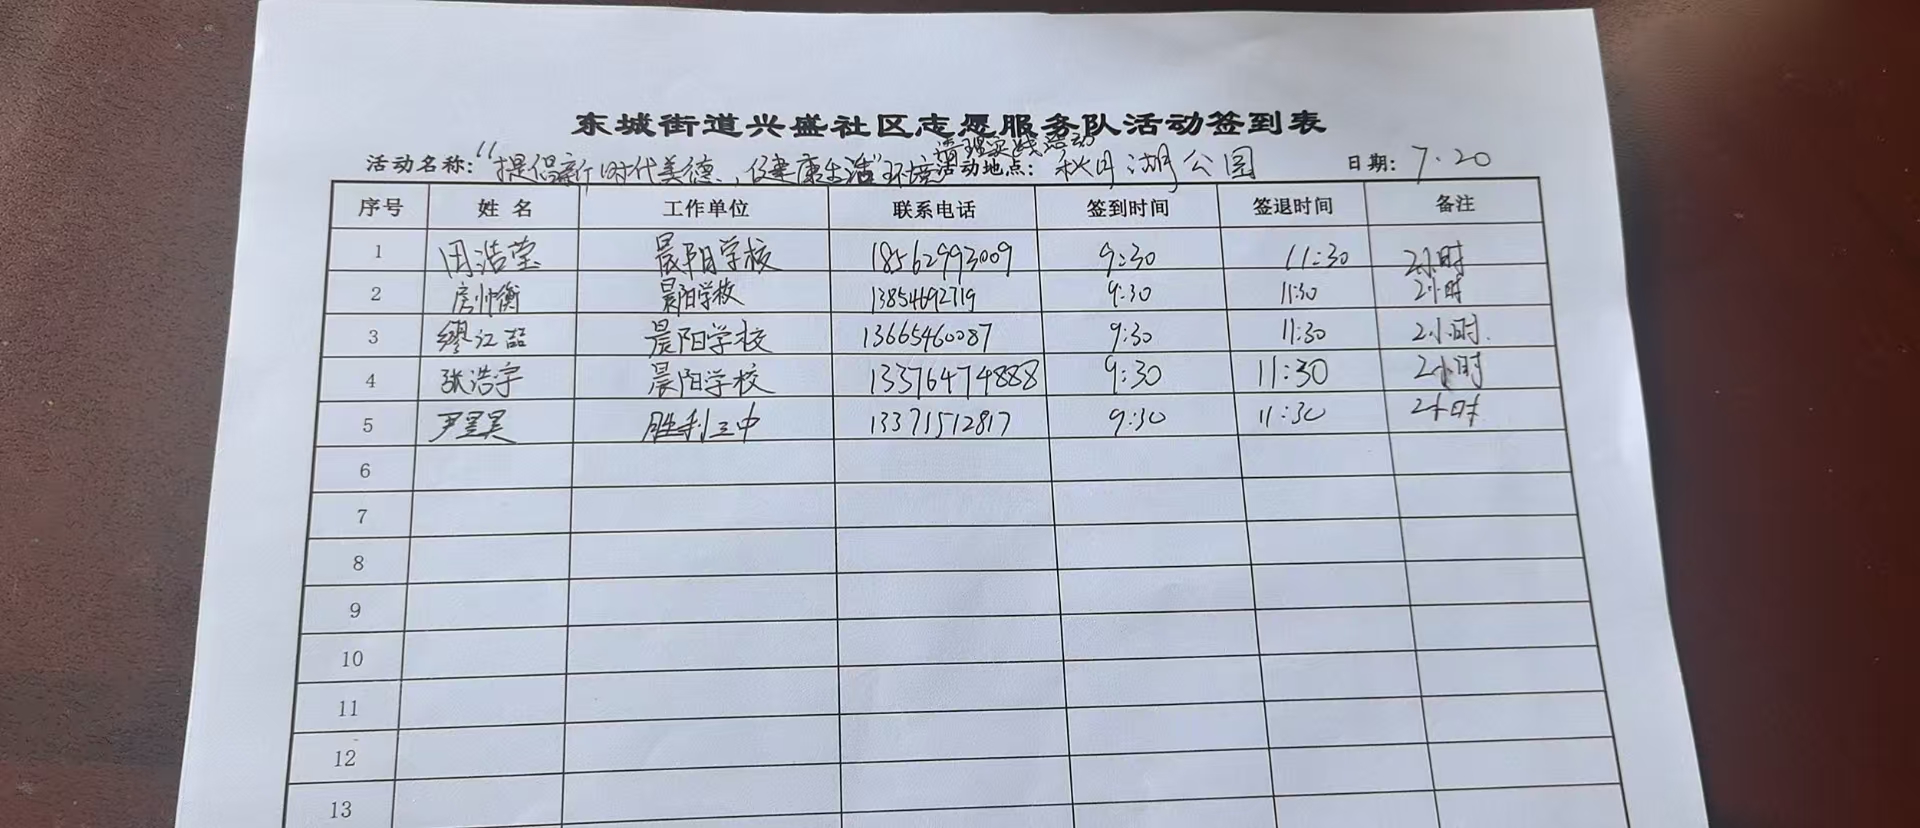 东城街道兴盛社区志愿服务队活动签到表
清理实践活动
活动名称：“提倡新时代美德、健康生活”环境 活动地点： 秋月湖公园 日期： 7.20
序号 姓名 工作单位 联系电话 签到时间 签退时间 备注
1 田浩莹 晨阳学校 18562993009 9:30 11:30 2小时
2 房帅衡 晨阳学校 13854692719 9:30 11:30 2小时
3 缪江喆 晨阳学校 13665460087 9:30 11:30 2小时.
4 张浩宇 晨阳学校 13376474888 9:30 11:30 2小时
5 尹昊 胜利三中 13371512817 9:30 11:30 2小时
6
7
8
9
10
11
12
13